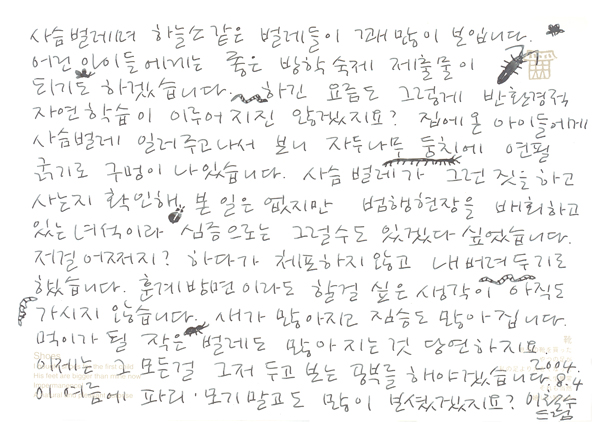 사슴벌레며 하늘소 같은 벌레들이 꽤 많이 보입니다.
어린 아이들에게는 좋은 방학숙제 제출물이
되기도 하겠습니다. 하긴 요즘도 그렇게 반환경적
자연학습이 이루어지진 않겠지요? 집에 온 아이들에게
사슴벌레 일러주고나서 보니 자두나무 둥치에 연필
굵기로 구멍이 나있습니다. 사슴벌레가 그런 짓을 하고
사는지 확인해 본 일은 없지만 범행현장을 배회하고
있는 녀석이라 심증으로는 그럴수도 있겠다 싶었습니다.
저걸 어쩌지? 하다가 체포하지 않고 내버려두기로
했습니다. 훈계방면이라도 할걸 싶은 생각이 아직도
가시지 않습니다. 새가 많아지고 짐승도 많아집니다.
먹이가 될 작은 벌레도 많아지는것 당연하지요.
이제는 그 모든걸 그저 두고 보는 공부를 해야겠습니다.
이 여름에 파리·모기말고도 많이 보셨겠지요?
2004.
8.4
이철수
드림